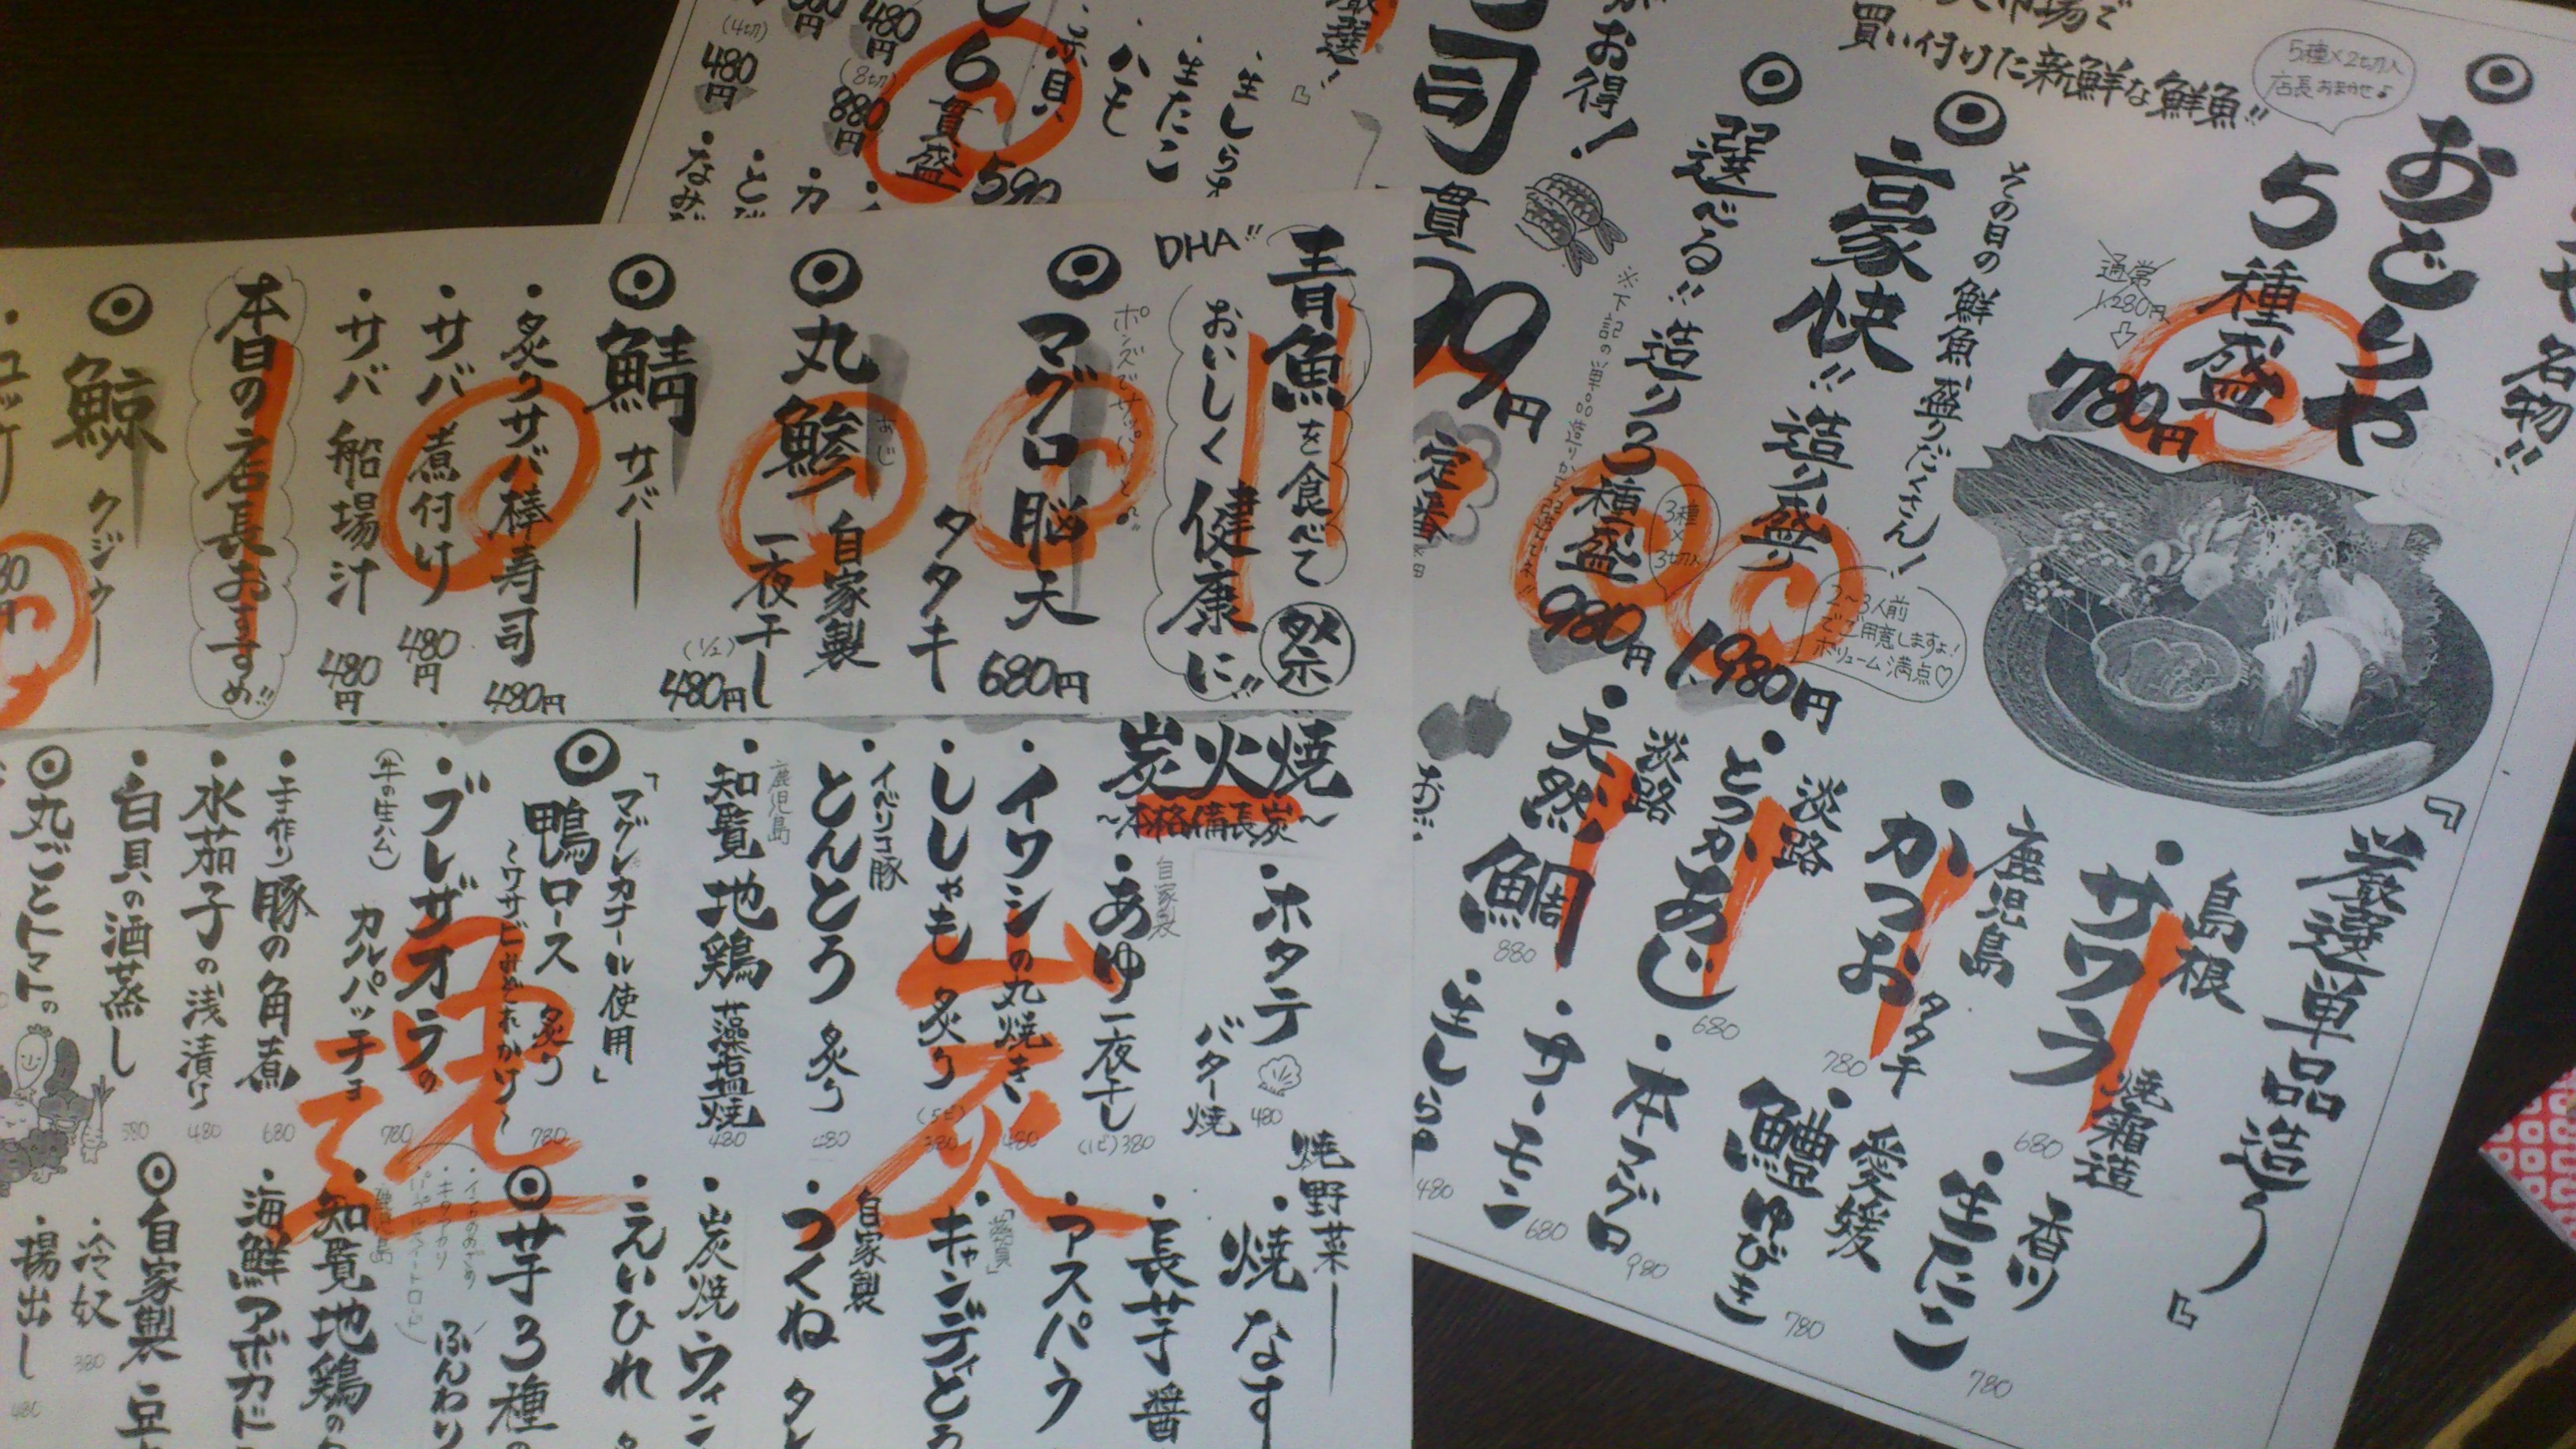 名物!!
おどりや
5種盛
5種×2切入
店長おまかせ♪
通常
1,280円
780円
買い付けた新鮮な鮮魚!!
その日の鮮魚盛りだくさん!
豪快!!造り盛り
1,980円
2〜3人前
でご用意しますよ!
ボリューム満点♡
選べる!!造り3種盛
3種
×
3切入
980円
お得!
司
貫
99円
定番
厳選単品造り
島根
・サワラ
焼霜造
680
鹿児島
・かつお
タタキ
780
淡路
・とつかあじ
680
淡路
・天然鯛
880
香川
・生たこ
780
愛媛
・鱧ゆびき
780
・本マグロ
980
・サーモン
680
・生しらす
480
厳選!
・生しらす
・生たこ
・ハモ
6貫盛
590
480円
(8切)
880円
(4切)
480円
青魚を食べて
祭
DHA!!
おいしく健康に!!
マグロ脳天
タタキ
680円
丸鯵
あじ
自家製
一夜干し
(1/2)
480円
鯖 サバー
・炙りサバ棒寿司
480円
・サバ煮付け
480円
・サバ船場汁
480円
本日の店長おすすめ!!
鯨 クジラー
炭火焼
〜本格備長炭〜
・ホタテ
バター焼
480
自家製
・あゆ一夜干し
(1ピ)380
・イワシの丸焼き
480
・ししゃも 炙り
(5ピ)
380
イベリコ豚
・とんとろ 炙り
480
鹿児島
・知覧地鶏 藻塩焼
480
「マグレカナール使用」
鴨ロース 炙り
〜ワサビみぞれかけ〜
780
・ブレザオラの
(牛の生ハム)
カルパッチョ
780
・手作り豚の角煮
680
・水茄子の浅漬け
480
・白貝の酒蒸し
580
丸ごとトマトの
焼野菜ー
・焼なす
・長芋 醤
・アスパラ
・キャンディとう
自家製
・つくね タレ
・炭焼ウィン
・えいひれ
芋3種の
ふんわり
・知覧地鶏の
・海鮮アボカド
自家製 豆
・冷奴
380
・揚出し
480
炭
逸